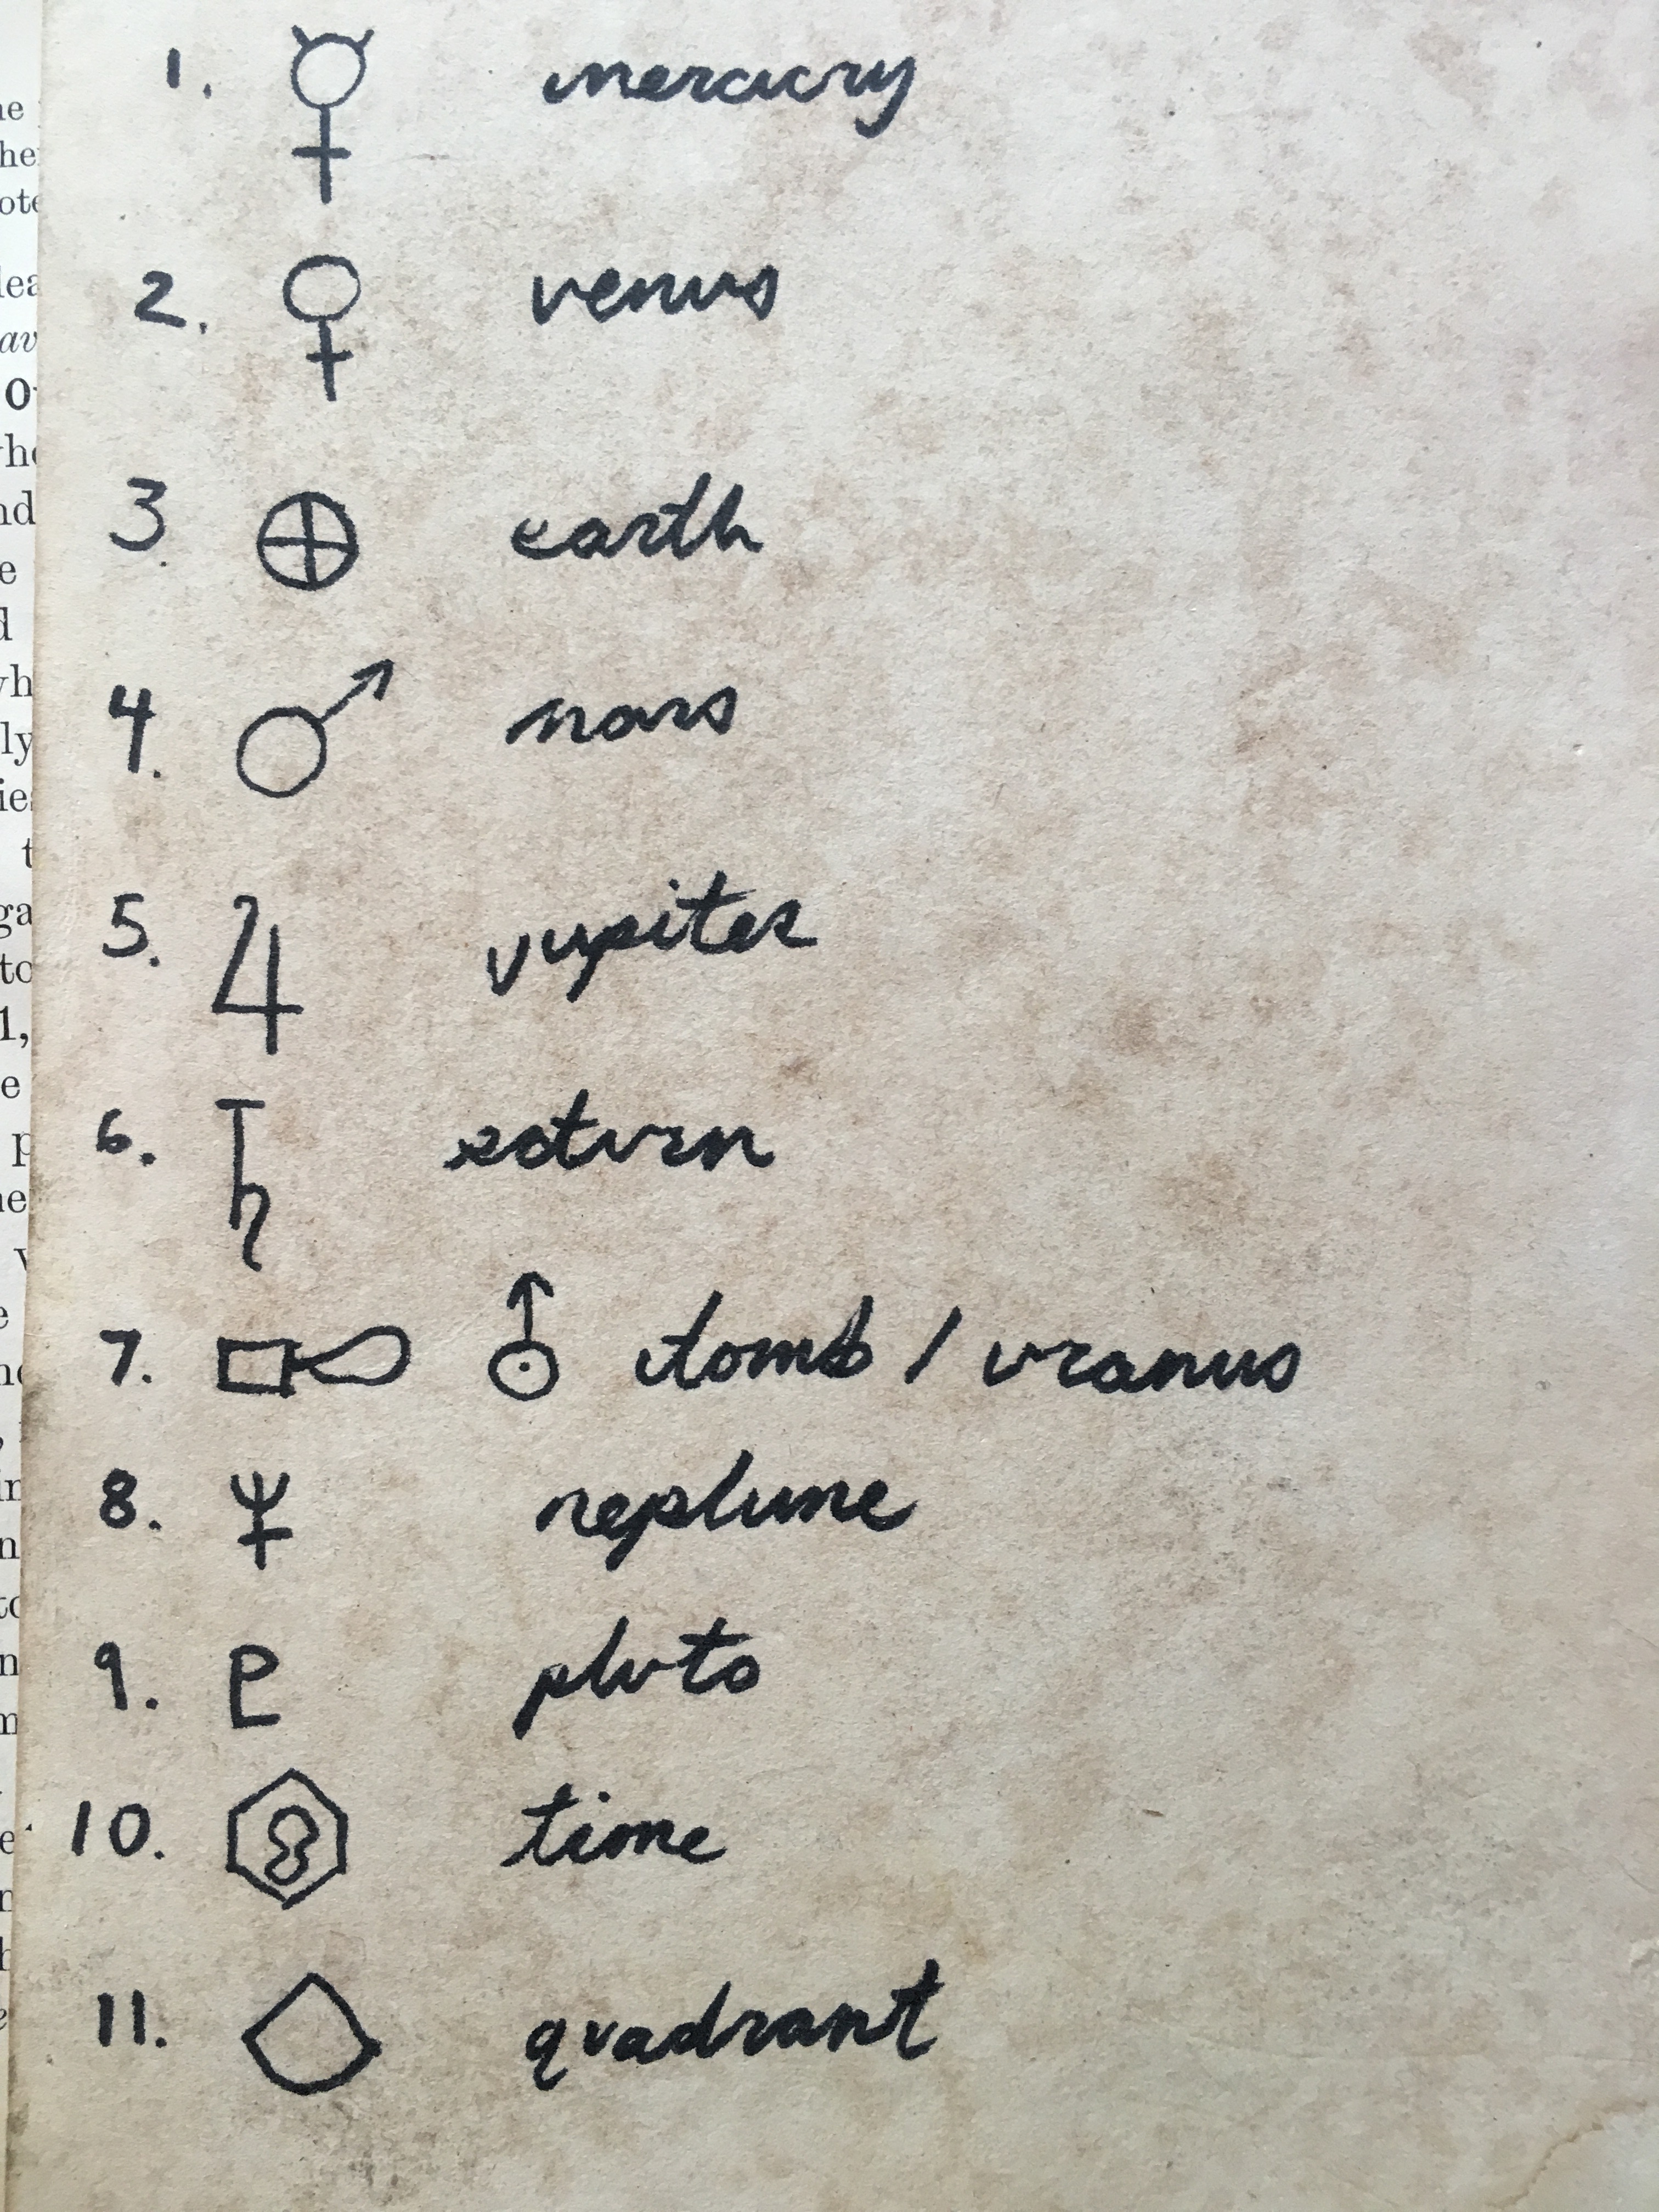 1. ☿ mercury
2. ♀ venus
3. ⊕ earth
4. ♂ mars
5. ♃ jupiter
6. ♄ saturn
7. ⛢ tomb / uranus
8. ♆ neptune
9. ♇ pluto
10. time
11. quadrant